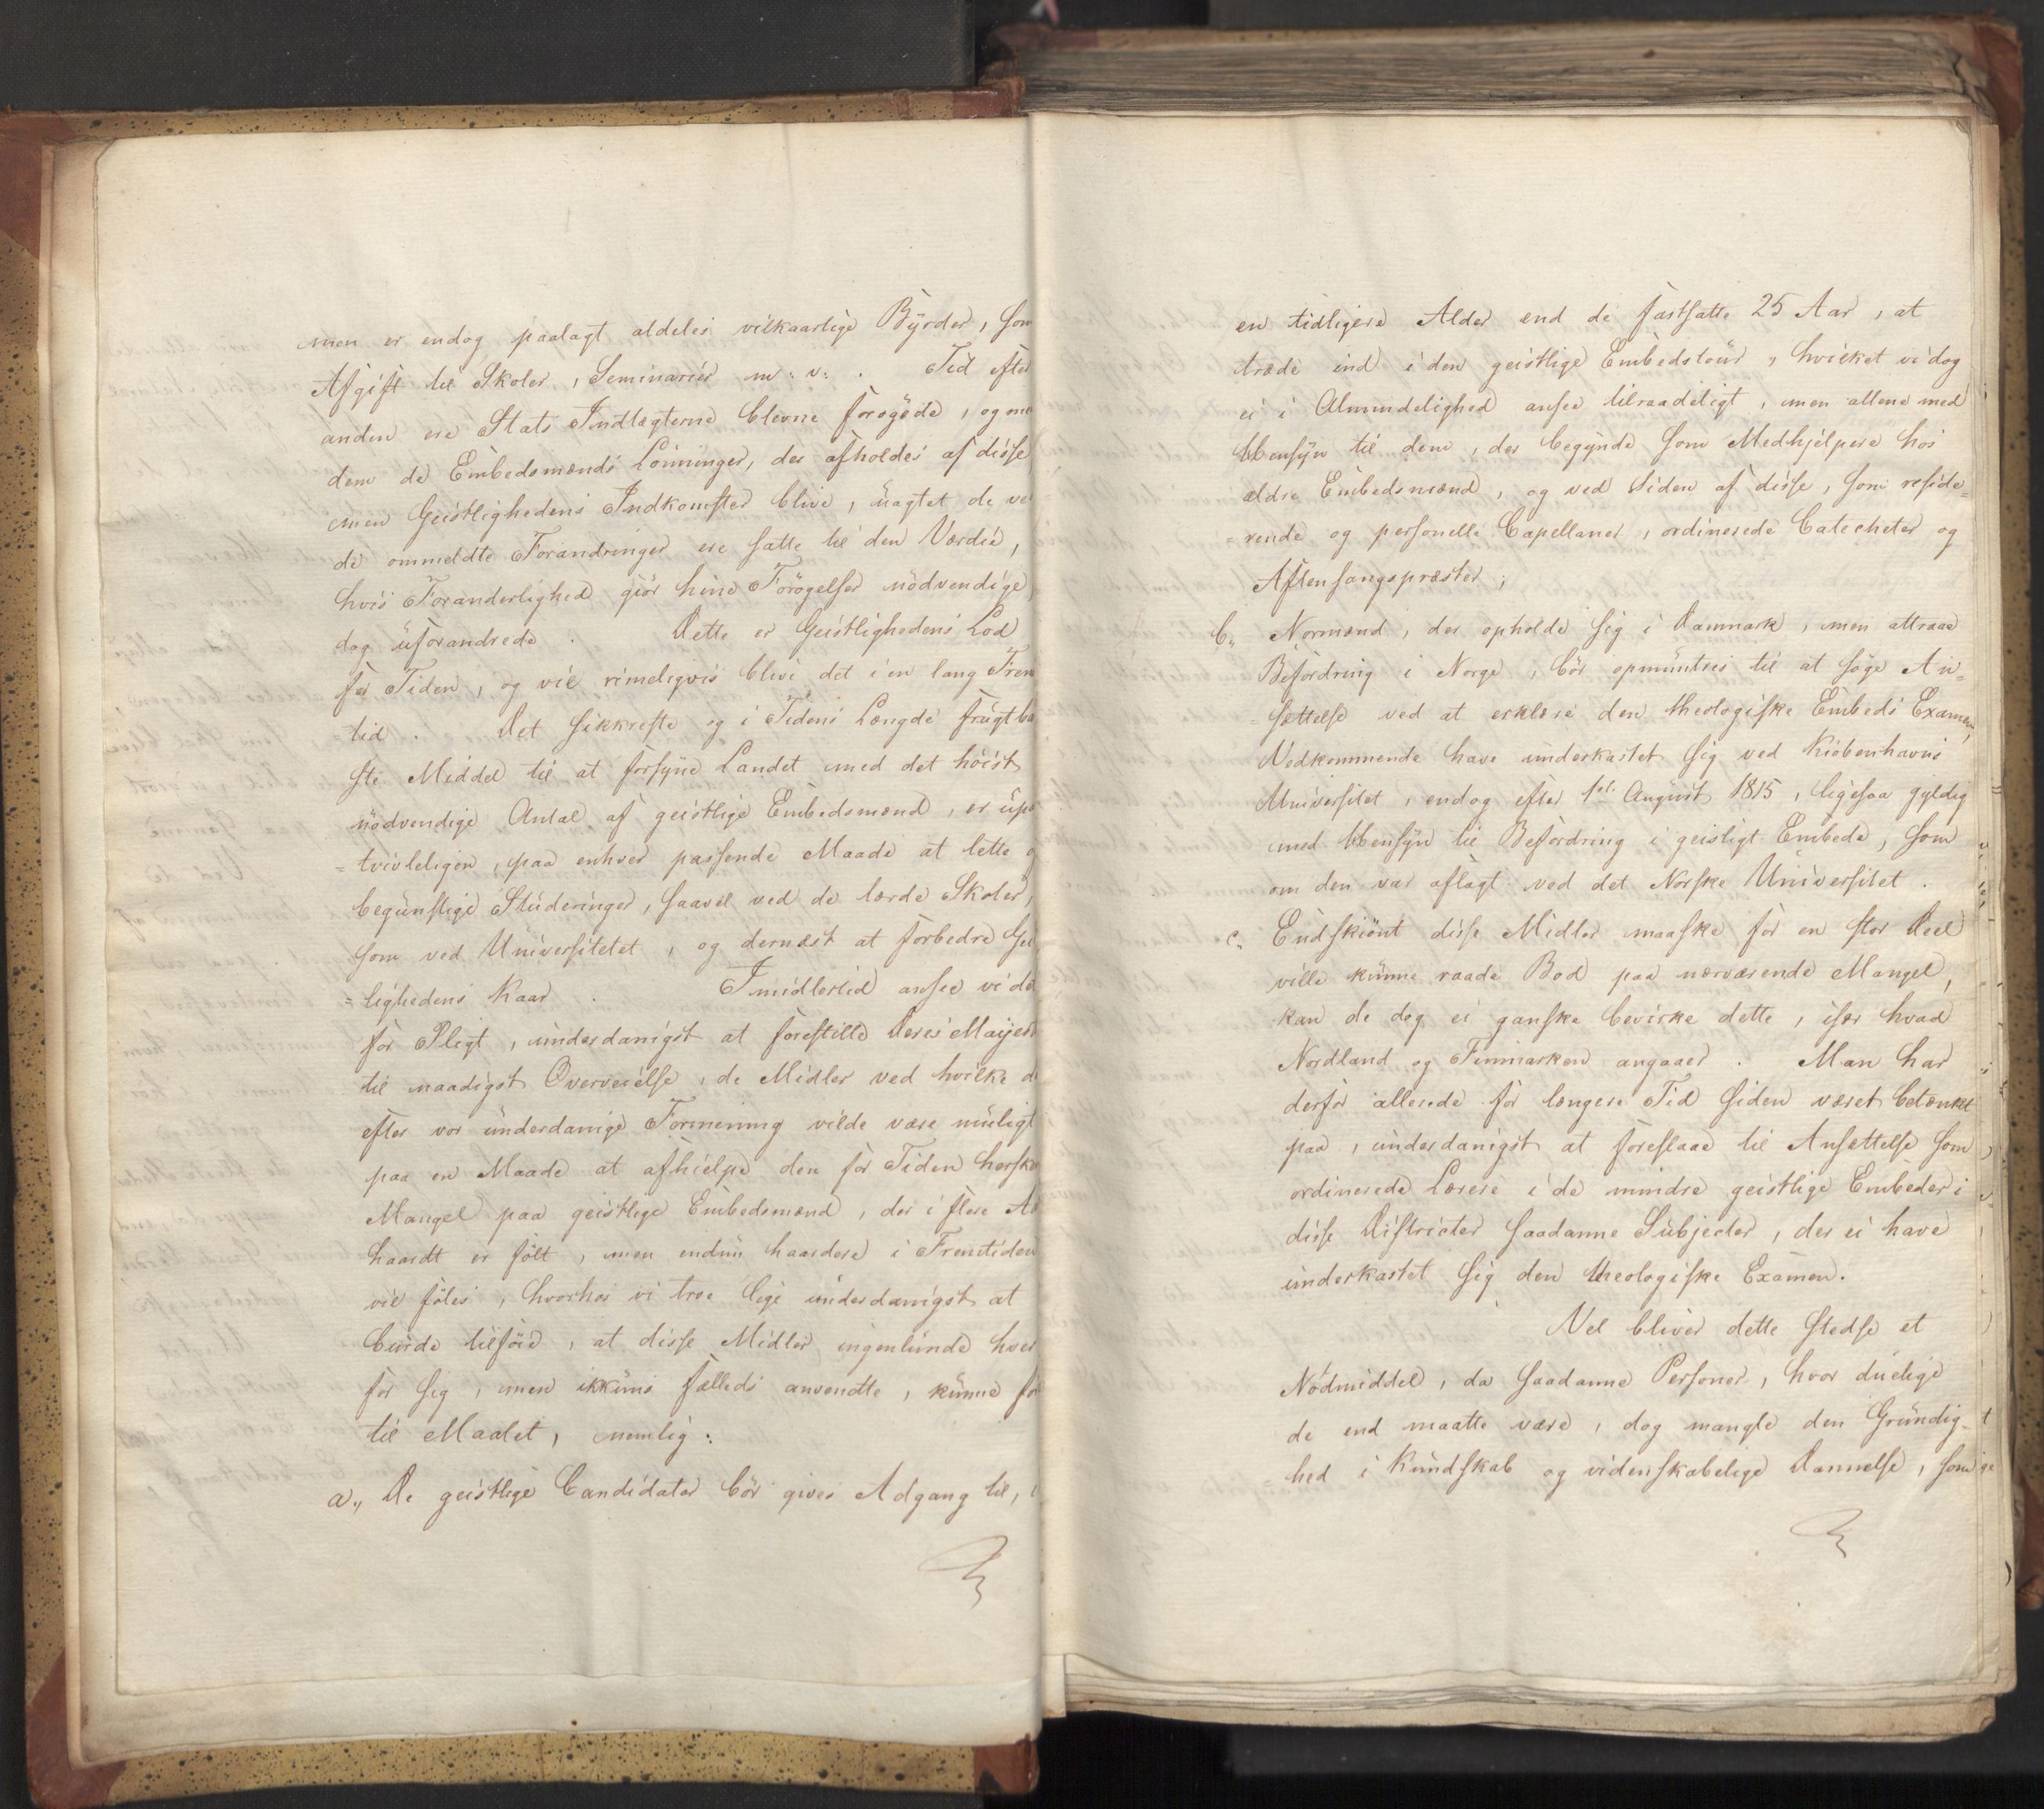 men er endog paalagt aldeles vilkaarlige Byrder, som
Afgift til Skoler, Seminarier m: v: . Tid efter
anden ere Stats Indtægterne blevne forøgede, og med
dem de Embedsmænds Lønninger, der afholdes af disse
men Geistlighedens Indkomster blive, uagtet de ved
de ommeldte Forandringer ere satte til den Værdie,
hvis Foranderlighed giør hine Forøgelser nødvendige,
dog uforandrede . Dette er Geistlighedens Lod
for Tiden, og vil rimeligvis blive det i en lang Frem
=tid . Det sikkreste og i Tidens Længde frugtba
ste Middel til at forsyne Landet med det høist
nødvendige Antal af geistlige Embedsmænd, er upa
=tvivleligen, paa enhver passende Maade at lette o
begunstige Studeringer, saavel ved de lærde Skoler,
som ved Universitetet, og dernæst at forbedre Gei
=lighedens Kaar . Imidlertid ansee vi det
for Pligt, underdanigst at forestille Deres Mayest
til naadigst Overveielse, de Midler ved hvilke d
efter vor underdanige Formening vilde være muligt
paa en Maade at afhielpe den for Tiden hersk
Mangel paa geistlige Embedsmænd, der i flere Aa
haardt er følt, men endnu haardere i Fremtiden
vil føles, hvorhos vi troe lige underdanigst at
burde tilføie, at disse Midler ingenlunde hver
for sig, men ikkuns fælleds anvendte, kunne fø
til Maalet, nemlig:
a., De geistlige Candidater bør gives Adgang til, i
en tidligere Alder end de fastsatte 25 Aar, at
træde ind i den geistlige Embedstour, hvilket vi dog
ei i Almindelighed ansee tilraadeligt, men allene med
Hensyn til dem, der begynde som Medhjelpere hos
ældre Embedsmænd, og ved Siden af disse, som reside=
=rende og personelle Capellaner, ordinerede Catecheter og
Aftensangspræster;
b., Normænd, der opholde sig i Danmark, men attraae
Befordring i Norge, bør opmuntres til at søge An=
=sættelse ved at erklære den theologiske Embeds Examen,
Vedkommende have underkastet sig ved Kiøbenhavns
Universitet, endog efter 1st August 1815, ligesaa gyldig
med Hensyn til Befordring i geisligt Embede, som
om den var aflagt ved det Norske Universitet .
c., Endskiønt disse Midler maaske for en stor Deel
ville kunne raade Bod paa nærværende Mangel,
kan de dog ei ganske bevirke dette, især hvad
Nordland og Finmarken angaaer . Man har
derfor allerede for længere Tid siden været betænkt
paa, underdanigst at foreslaae til Ansættelse som
ordinerede Lærere i de mindre geistlige Embeder i
disse Districter saadanne Subjecter, der ei have
underkastet sig den theologiske Examen.
Vel bliver dette stedse et
Nødmiddel, da saadanne Personer, hvor duelige
de end maatte være, dog mangle den Grundig=
=hed i Kundskab og videnskabelige Dannelse, som